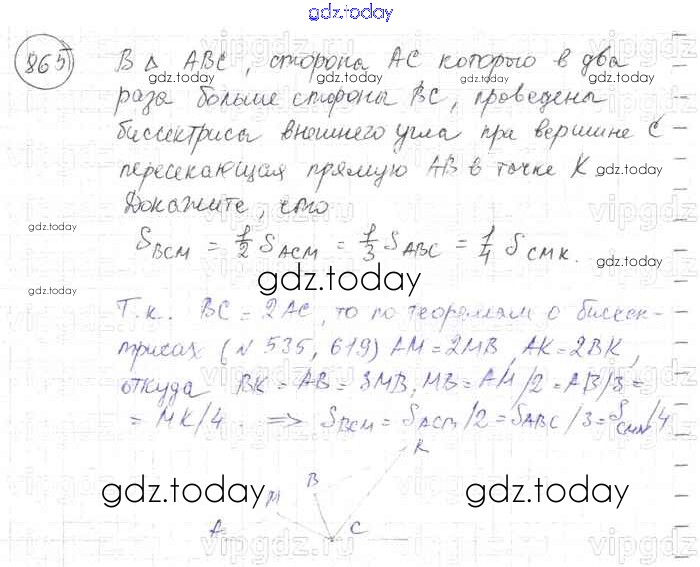 gdz.today
865
В △ ABC, сторона AC которого в два
раза больше стороны BC, проведены
биссектриса внешнего угла при вершине C
пересекающая прямую AB в точке K
Докажите, что
S BCM = 1/2 S ACM = 1/3 S ABC = 1/4 S CMK.
gdz.today
Т.к. BC = 2AC, то по теоремам о биссек-
трисах (N 535, 619) AM = 2MB, AK = 2BK,
откуда BK = AB = 3MB, MB = AM/2 = AB/3 =
= MK/4. => S BCM = S ACM/2 = S ABC/3 = S CMK/4
K
B
M
A
C
gdz.today
gdz.today
vipgdz.ru